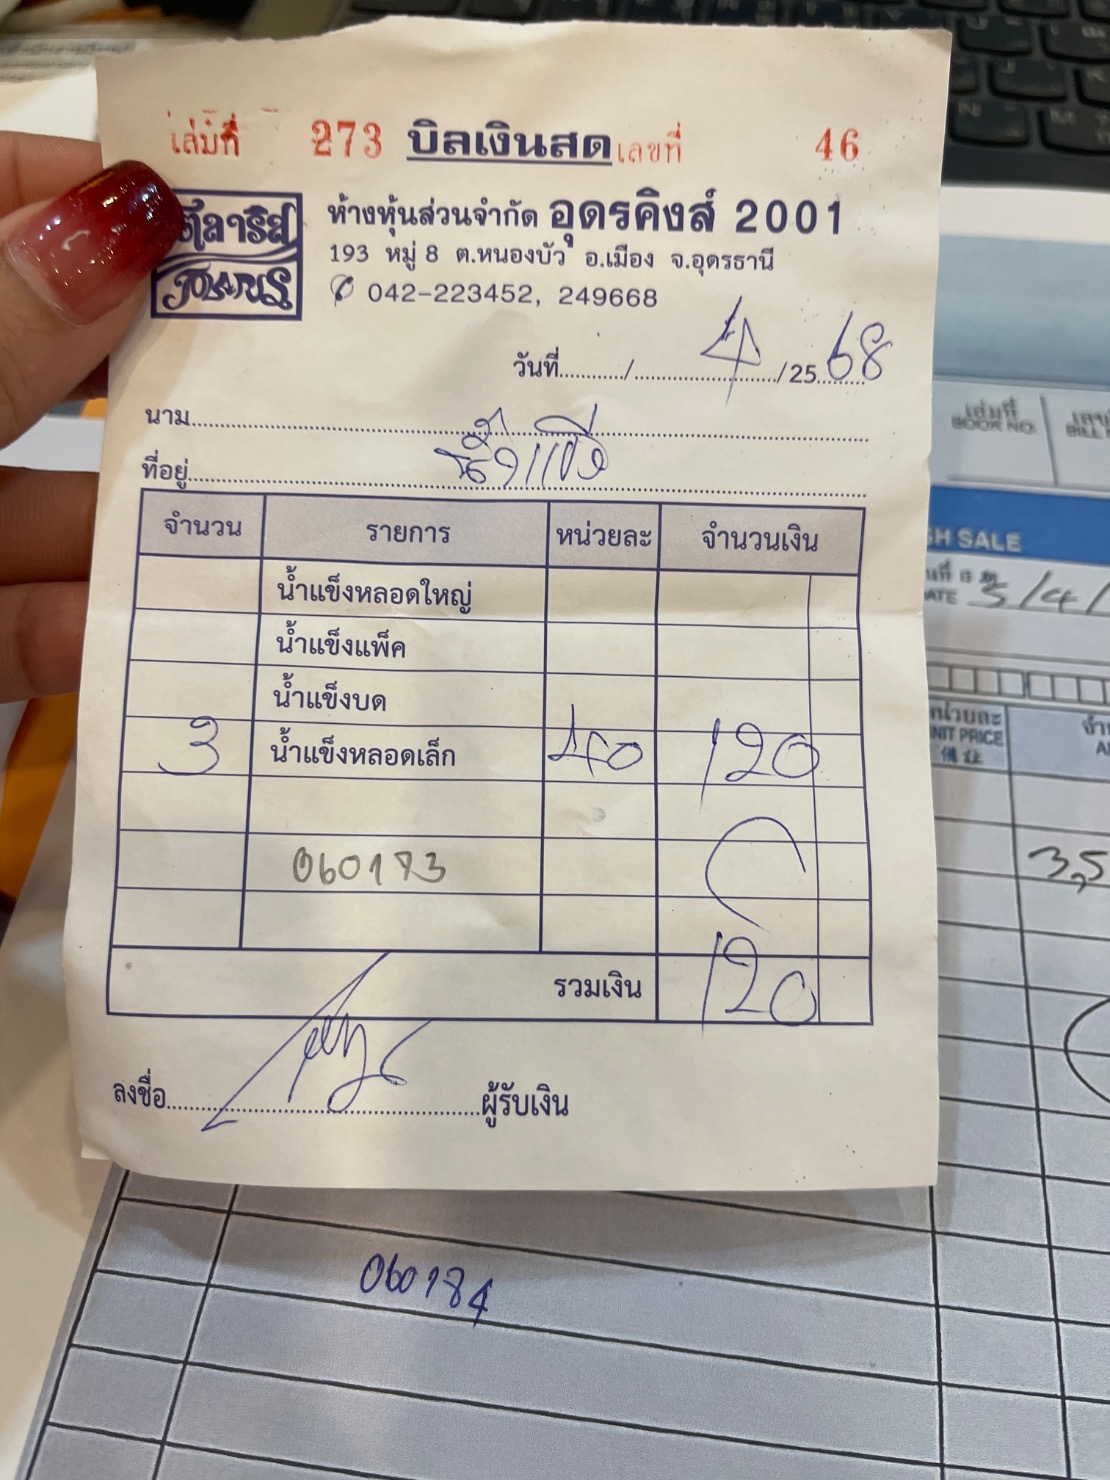 เล่มที่ 273 บิลเงินสด เลขที่ 46
โพลาริส
POLARIS
ห้างหุ้นส่วนจำกัด อุดรคิงส์ 2001
193 หมู่ 8 ต.หนองบัว อ.เมือง จ.อุดรธานี
042-223452, 249668
วันที่........../ 4 /25 68
นาม
น้ำแข็ง
ที่อยู่
จำนวน รายการ หน่วยละ จำนวนเงิน
น้ำแข็งหลอดใหญ่
น้ำแข็งแพ็ค
น้ำแข็งบด
3 น้ำแข็งหลอดเล็ก 40 120
060183
รวมเงิน 120
ลงชื่อ ผู้รับเงิน
เล่มที่
BOOK NO.
BILL
SH SALE
ATE 5/4/
หน่วยละ
NIT PRICE
3,5
060184